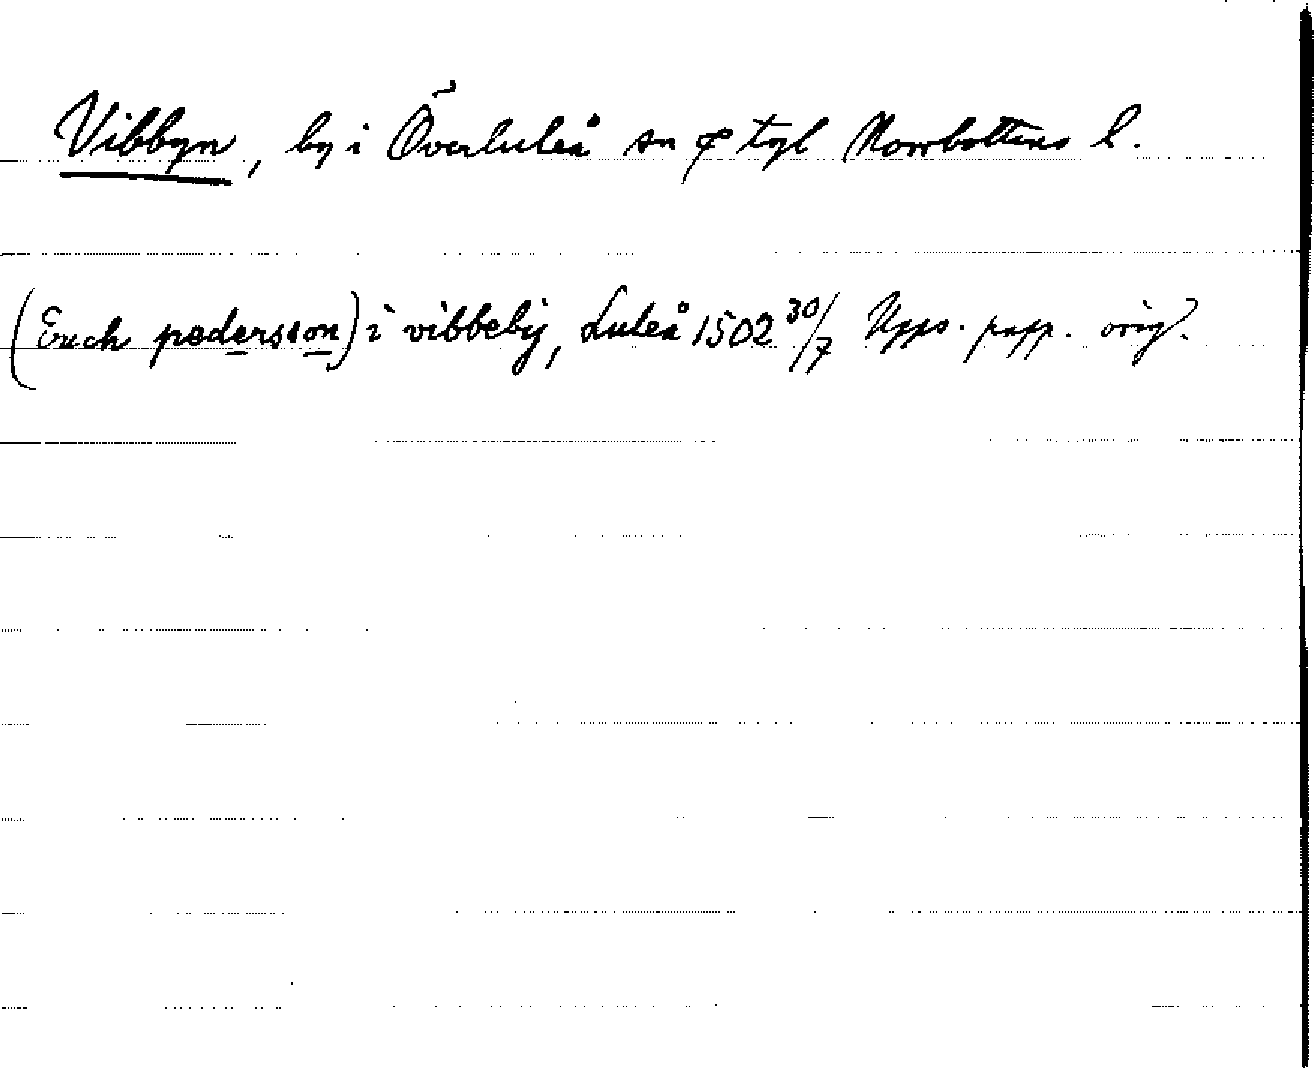 Vibbyn, by i Överluleå sn o tgl Norrbottens l.
(Erich pedersson) i vibbebÿ, Luleå 1502 30/7 Upps. papp. orig.